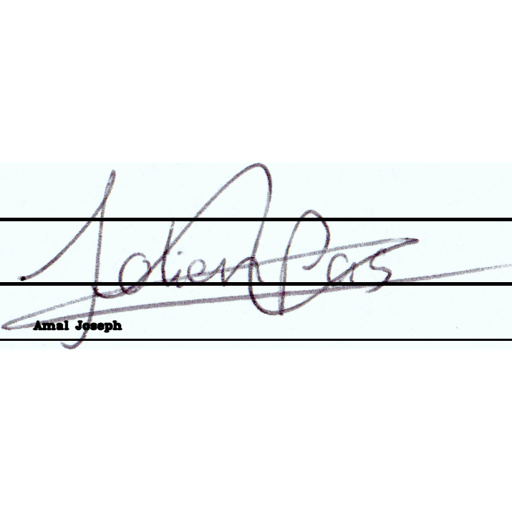 Jolien Pas
Amal Joseph